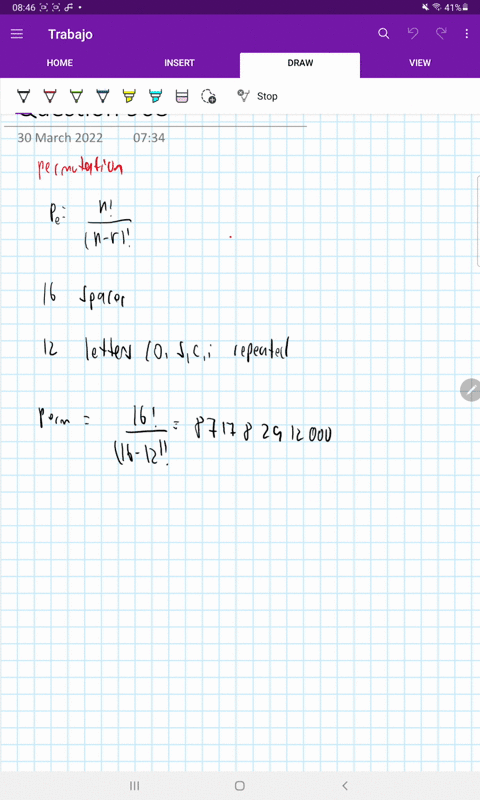 08:46 41%
Trabajo
HOME INSERT DRAW VIEW
Stop
30 March 2022 07:34
permutation
Pe: n!
(n-r)!
16 spaces
12 letters (o, s, c, i repeated
Perm = 16! = 871782912000
(16-12)!